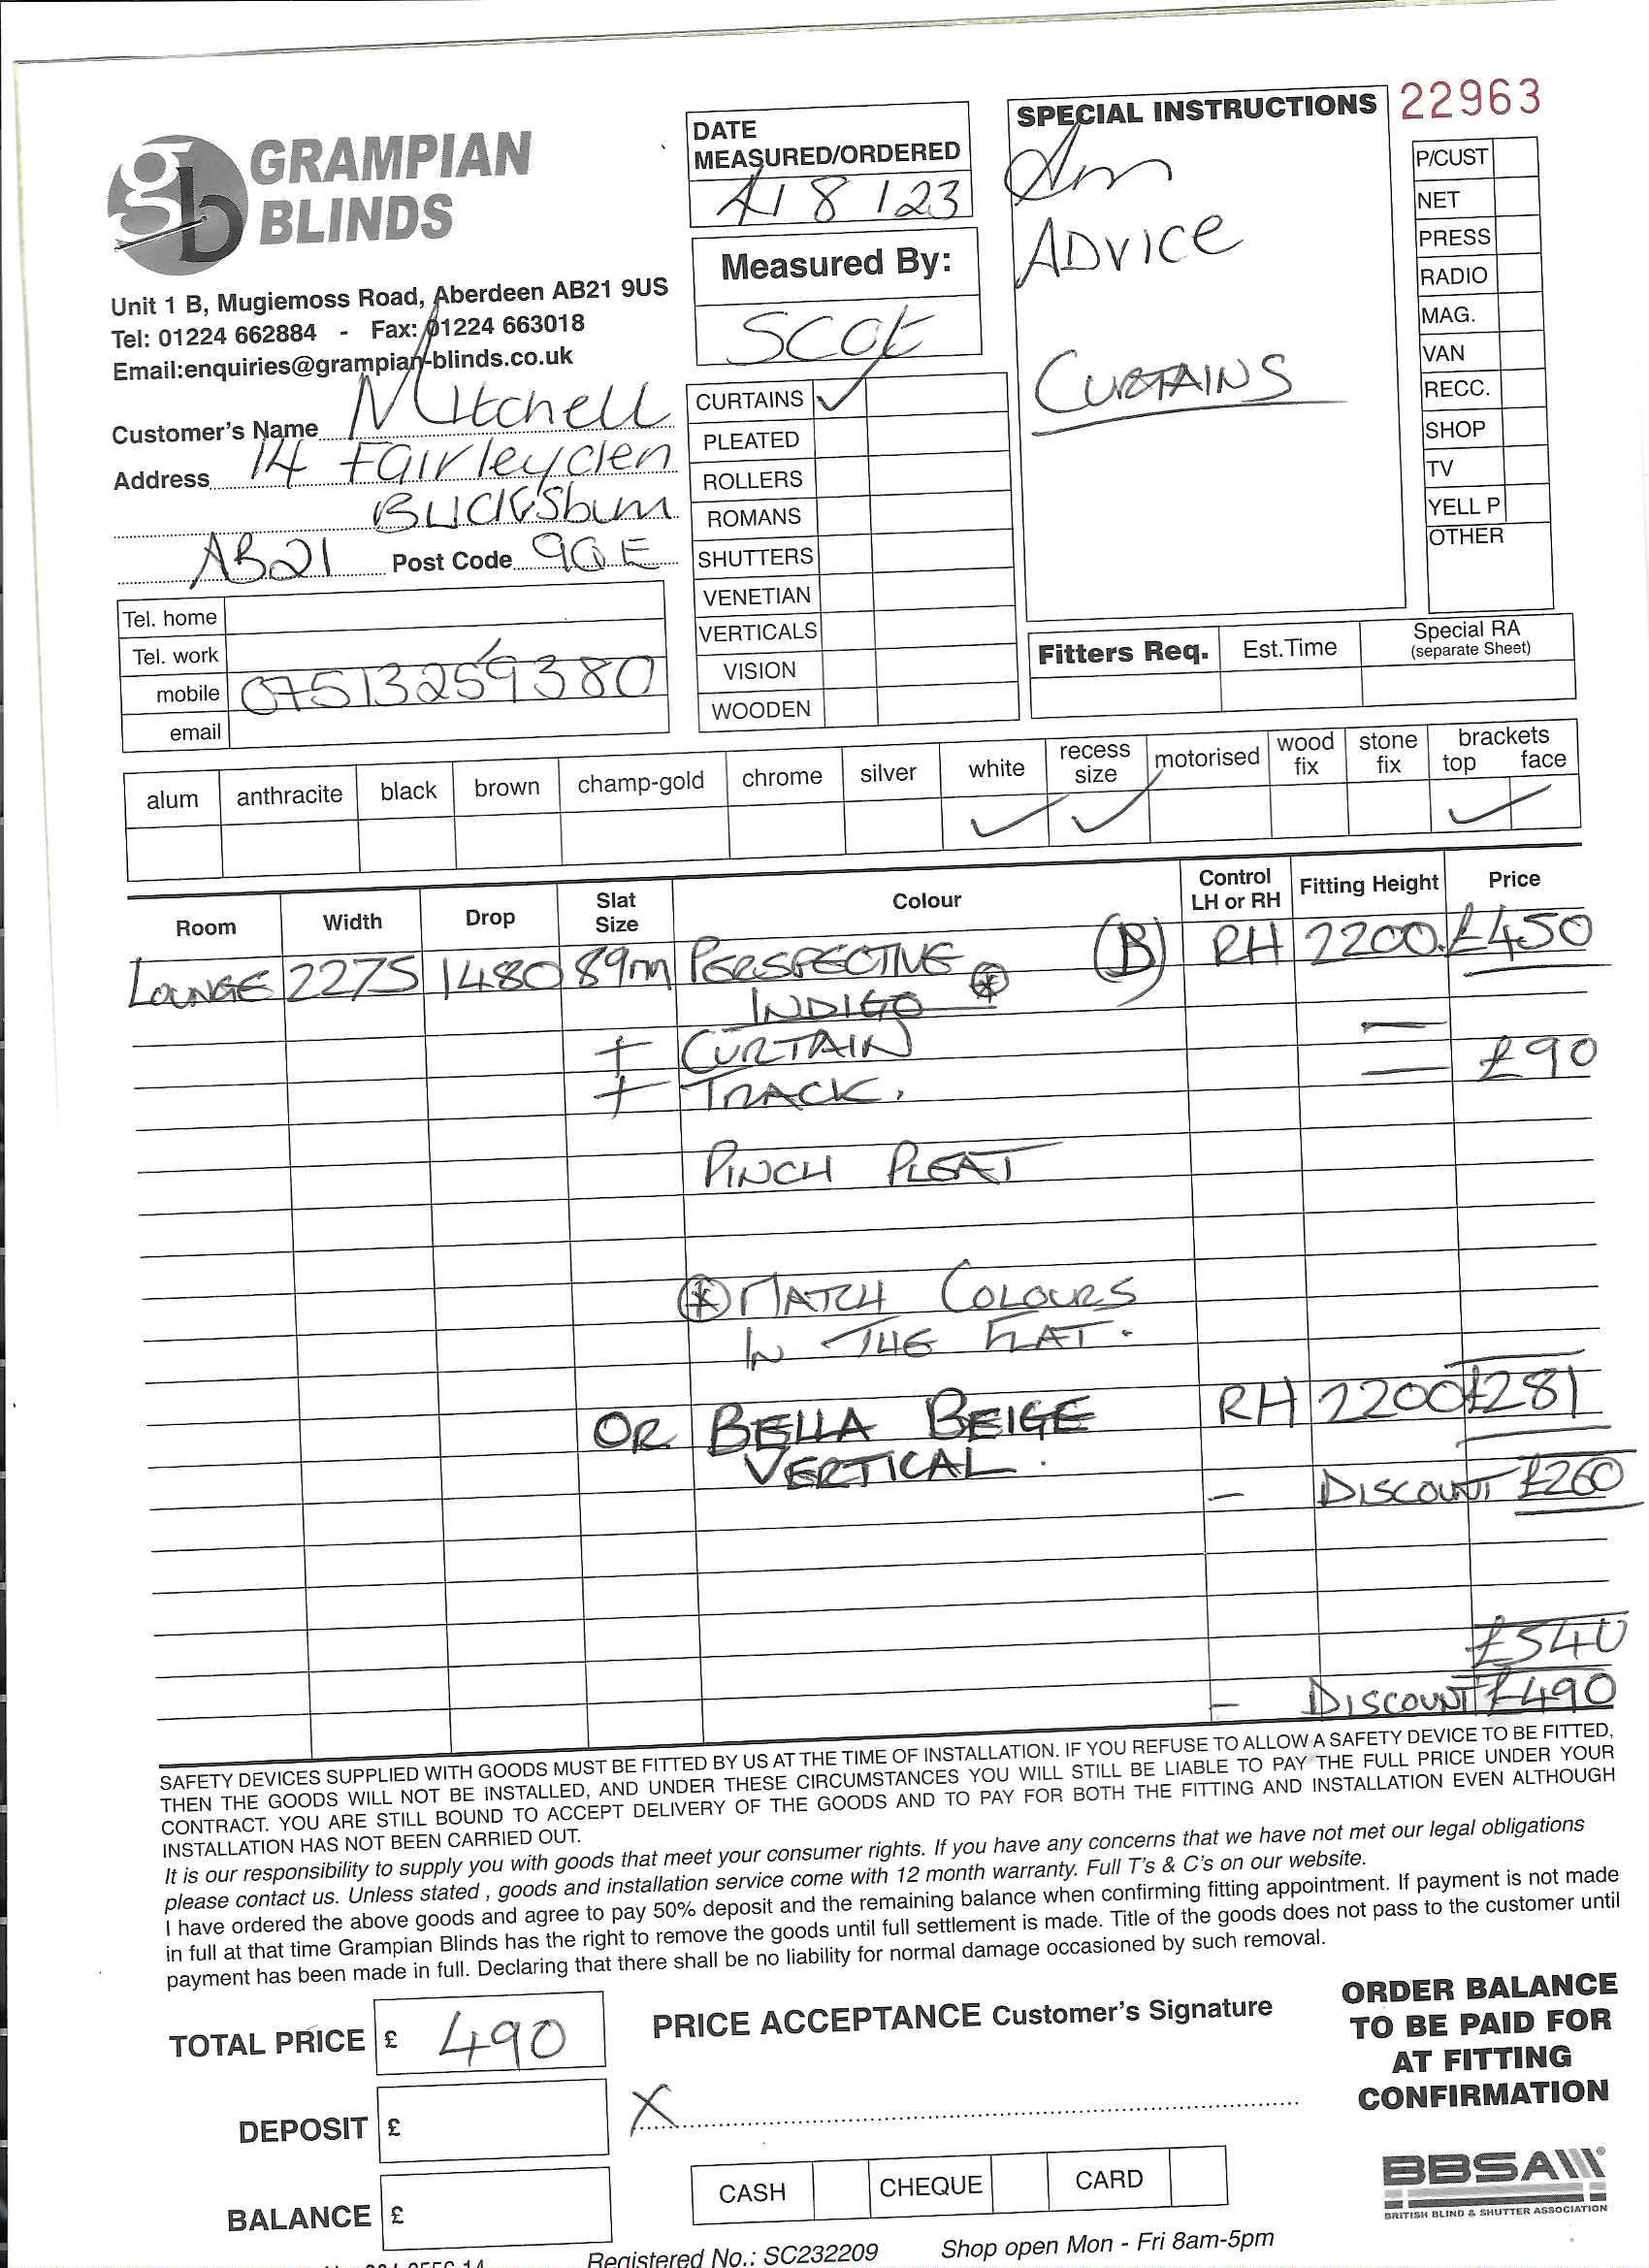 22963
GRAMPIAN
BLINDS
Unit 1 B, Mugiemoss Road, Aberdeen AB21 9US
Tel: 01224 662884 - Fax: 01224 663018
Email:enquiries@grampian-blinds.co.uk
Customer's Name Mitchell
Address 14 Fairleyden
Bucksburn
AB21 Post Code 9QE
Tel. home
Tel. work
mobile 07513259380
email
DATE
MEASURED/ORDERED
4/8/23
Measured By:
Scot
CURTAINS ✓
PLEATED
ROLLERS
ROMANS
SHUTTERS
VENETIAN
VERTICALS
VISION
WOODEN
SPECIAL INSTRUCTIONS
Am
ADVICE
CURTAINS
P/CUST
NET
PRESS
RADIO
MAG.
VAN
RECC.
SHOP
TV
YELL P
OTHER
Fitters Req. Est.Time Special RA
(separate Sheet)
alum anthracite black brown champ-gold chrome silver white recess size motorised wood fix stone fix brackets top face
✓ ✓ ✓
Room Width Drop Slat Size Colour Control LH or RH Fitting Height Price
LOUNGE 2275 1480 89m PERSPECTIVE (B) RH 2200 £450
INDIGO *
+ CURTAIN —
+ TRACK. — £90
PINCH PLEAT
* MATCH COLOURS
IN THE FLAT.
OR BELLA BEIGE RH 2200 £281
VERTICAL.
- DISCOUNT £260
£540
- DISCOUNT £490
SAFETY DEVICES SUPPLIED WITH GOODS MUST BE FITTED BY US AT THE TIME OF INSTALLATION. IF YOU REFUSE TO ALLOW A SAFETY DEVICE TO BE FITTED,
THEN THE GOODS WILL NOT BE INSTALLED, AND UNDER THESE CIRCUMSTANCES YOU WILL STILL BE LIABLE TO PAY THE FULL PRICE UNDER YOUR
CONTRACT. YOU ARE STILL BOUND TO ACCEPT DELIVERY OF THE GOODS AND TO PAY FOR BOTH THE FITTING AND INSTALLATION EVEN ALTHOUGH
INSTALLATION HAS NOT BEEN CARRIED OUT.
It is our responsibility to supply you with goods that meet your consumer rights. If you have any concerns that we have not met our legal obligations
please contact us. Unless stated , goods and installation service come with 12 month warranty. Full T's & C's on our website.
I have ordered the above goods and agree to pay 50% deposit and the remaining balance when confirming fitting appointment. If payment is not made
in full at that time Grampian Blinds has the right to remove the goods until full settlement is made. Title of the goods does not pass to the customer until
payment has been made in full. Declaring that there shall be no liability for normal damage occasioned by such removal.
TOTAL PRICE £ 490
DEPOSIT £
BALANCE £
PRICE ACCEPTANCE Customer's Signature
X
CASH CHEQUE CARD
ORDER BALANCE
TO BE PAID FOR
AT FITTING
CONFIRMATION
BBSA
BRITISH BLIND & SHUTTER ASSOCIATION
Registered No.: SC232209 Shop open Mon - Fri 8am-5pm